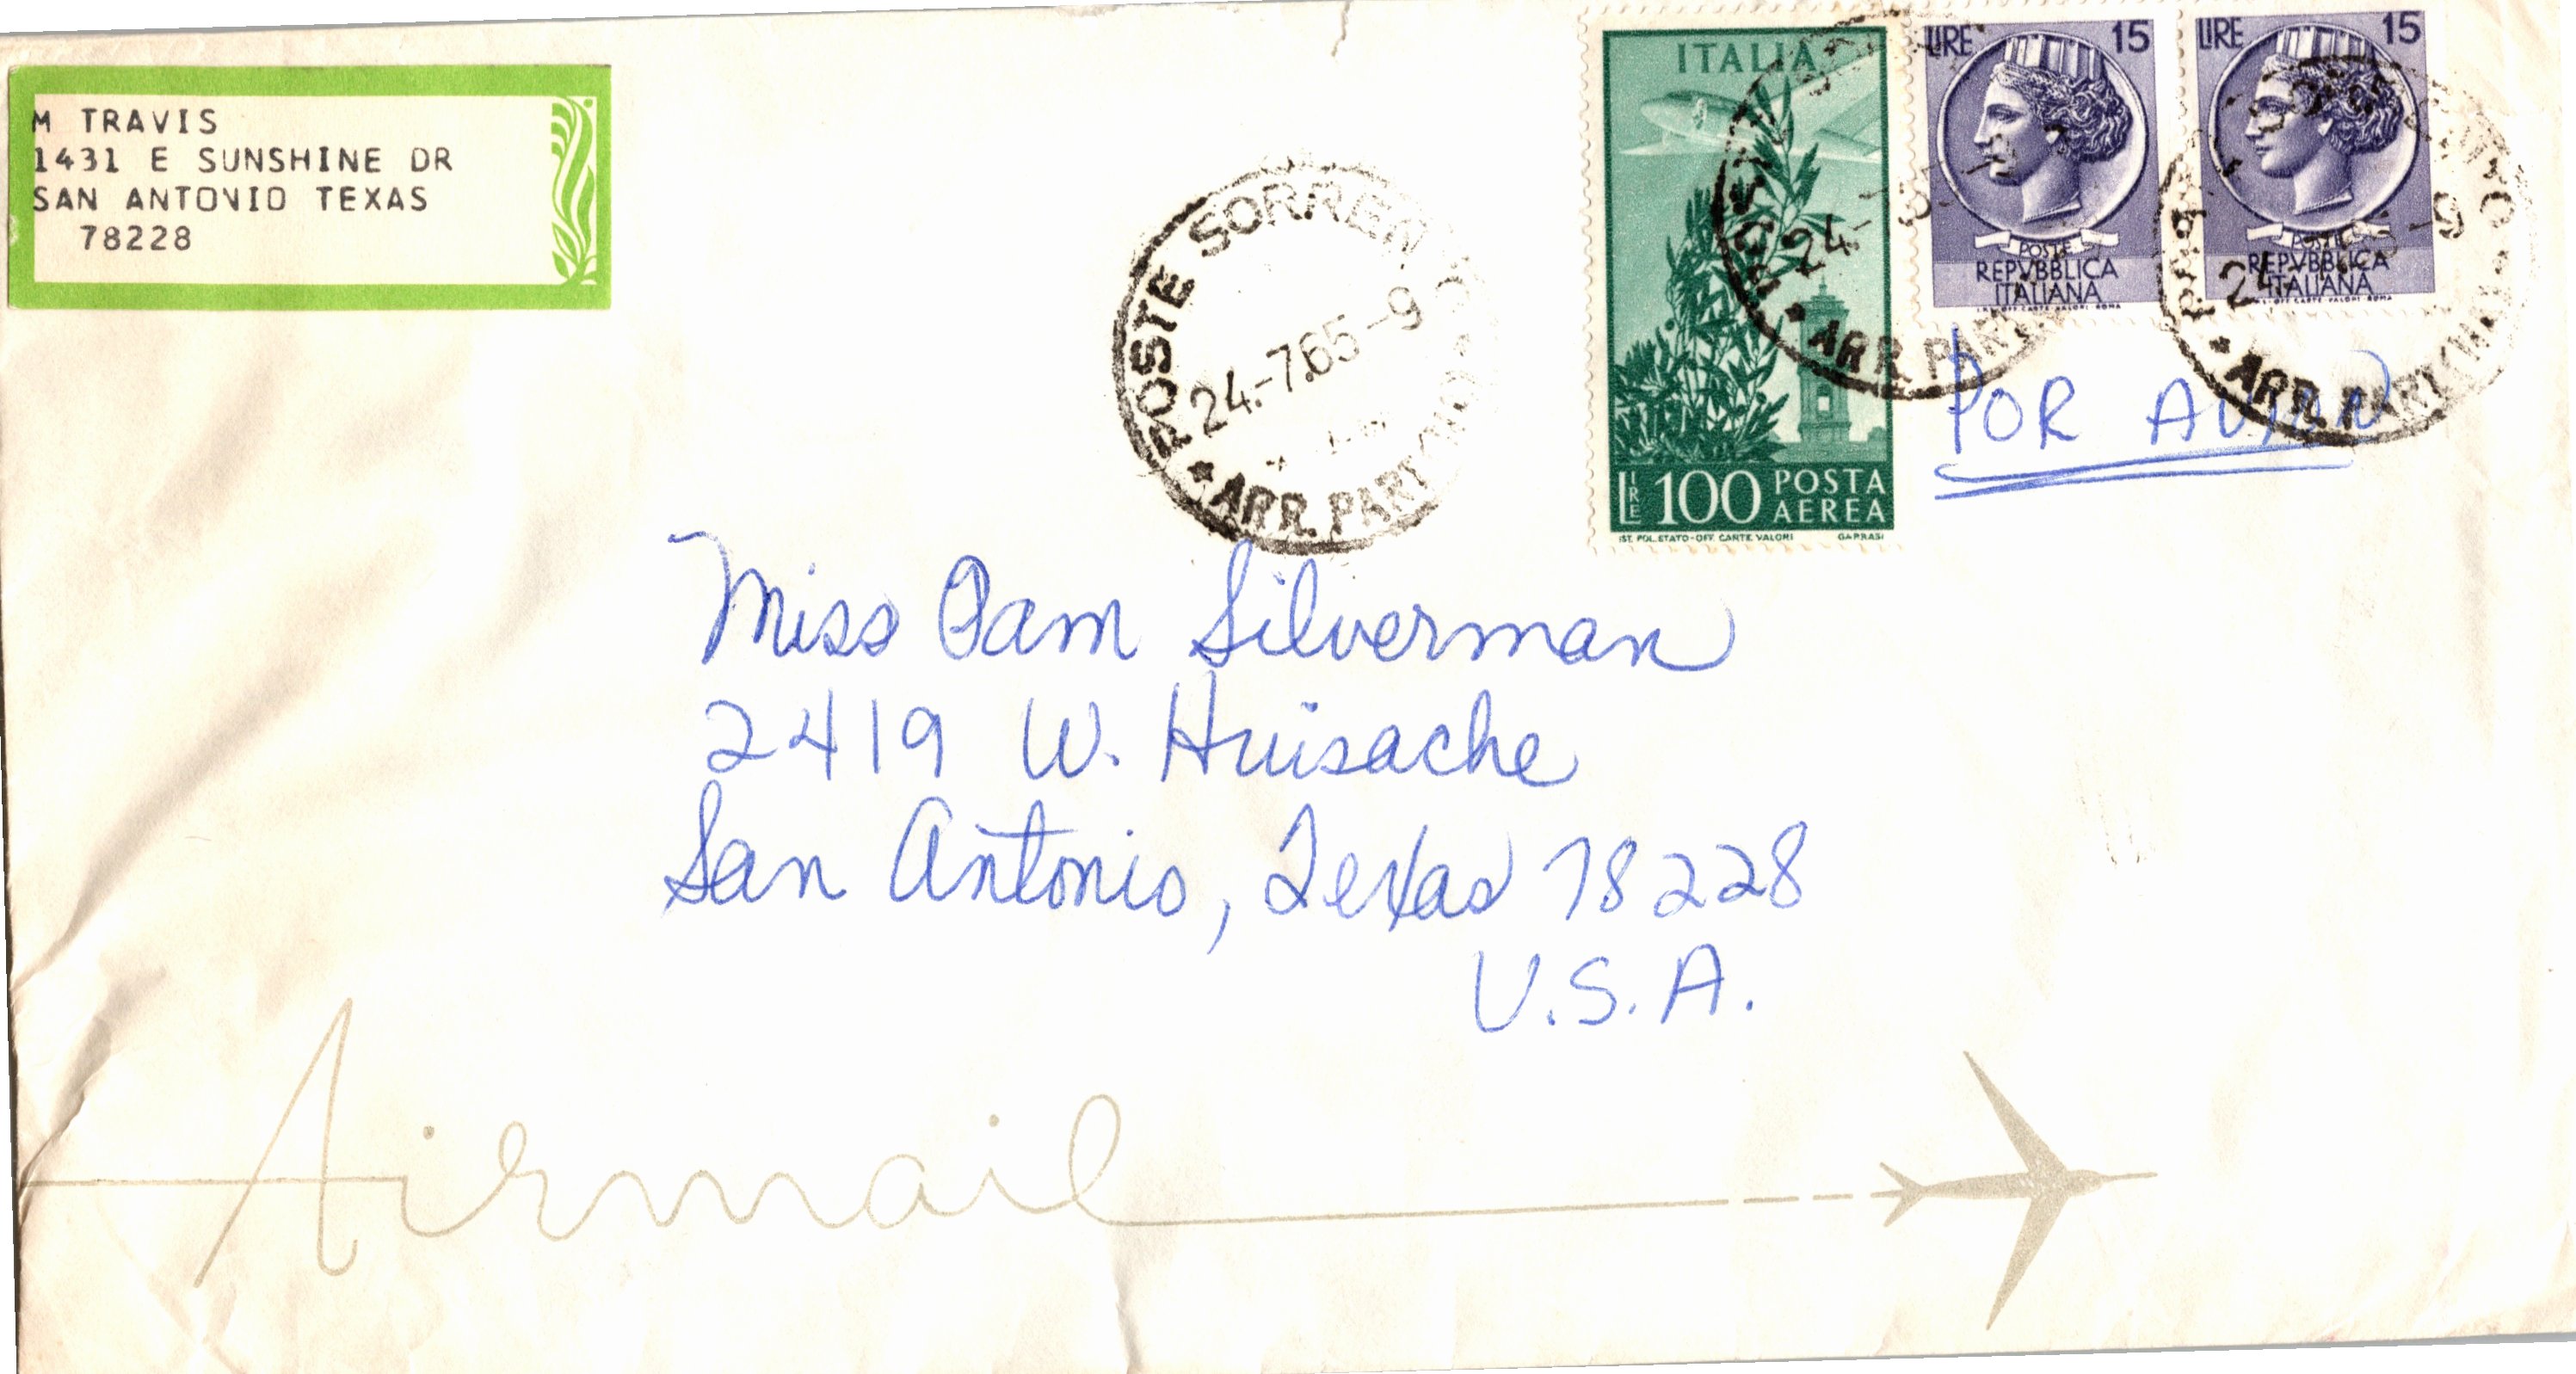 M TRAVIS
1431 E SUNSHINE DR
SAN ANTONIO TEXAS
78228
POSTE SORREN
24.-7.65-9
ARR. PART
ITALIA
LIRE 100 POSTA AEREA
IST. POL. STATO-OFF. CARTE VALORI
LIRE 15
POSTE
REPVBBLICA
ITALIANA
LIRE 15
POSTE
REPVBBLICA
ITALIANA
24
ARR. PART
24
ARR. PART
POR AVION
Miss Pam Silverman
2419 W. Huisache
San Antonio, Texas 78228
U.S.A.
Airmail